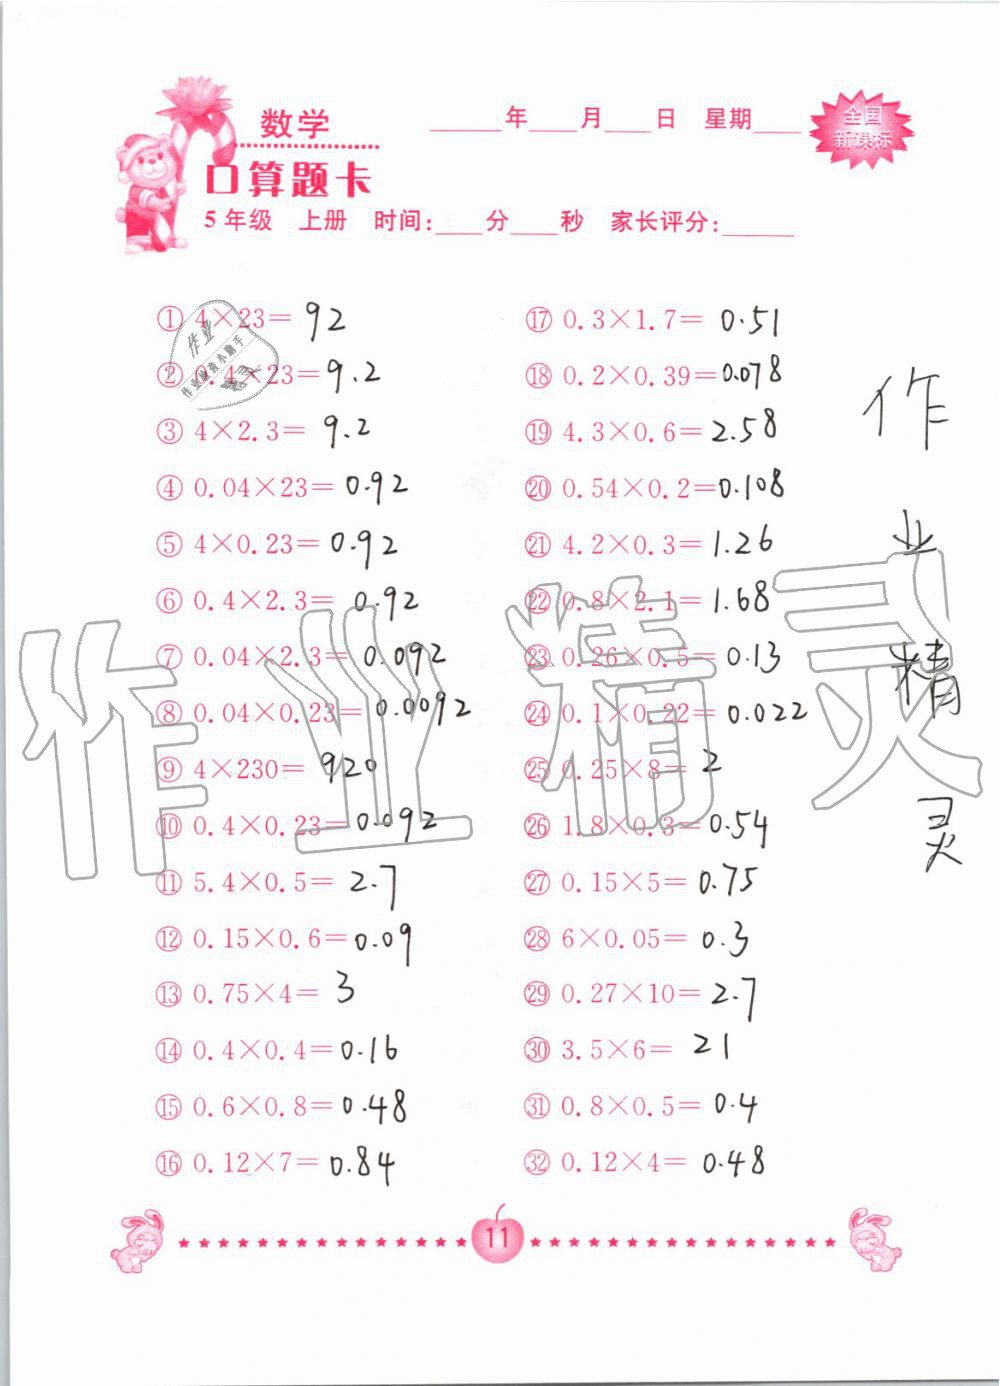 数学
____年____月____日 星期____
全国
新课标
口算题卡
5年级 上册 时间:____分____秒 家长评分:______
① 4×23= 92
② 0.4×23= 9.2
③ 4×2.3= 9.2
④ 0.04×23= 0.92
⑤ 4×0.23= 0.92
⑥ 0.4×2.3= 0.92
⑦ 0.04×2.3= 0.092
⑧ 0.04×0.23= 0.0092
⑨ 4×230= 920
⑩ 0.4×0.23= 0.092
⑪ 5.4×0.5= 2.7
⑫ 0.15×0.6= 0.09
⑬ 0.75×4= 3
⑭ 0.4×0.4= 0.16
⑮ 0.6×0.8= 0.48
⑯ 0.12×7= 0.84
⑰ 0.3×1.7= 0.51
⑱ 0.2×0.39= 0.078
⑲ 4.3×0.6= 2.58
⑳ 0.54×0.2= 0.108
㉑ 4.2×0.3= 1.26
㉒ 0.8×2.1= 1.68
㉓ 0.26×0.5= 0.13
㉔ 0.1×0.22= 0.022
㉕ 0.25×8= 2
㉖ 1.8×0.3= 0.54
㉗ 0.15×5= 0.75
㉘ 6×0.05= 0.3
㉙ 0.27×10= 2.7
㉚ 3.5×6= 21
㉛ 0.8×0.5= 0.4
㉜ 0.12×4= 0.48
作业精灵
作业精灵
作业
作业检查小助手
精灵
11